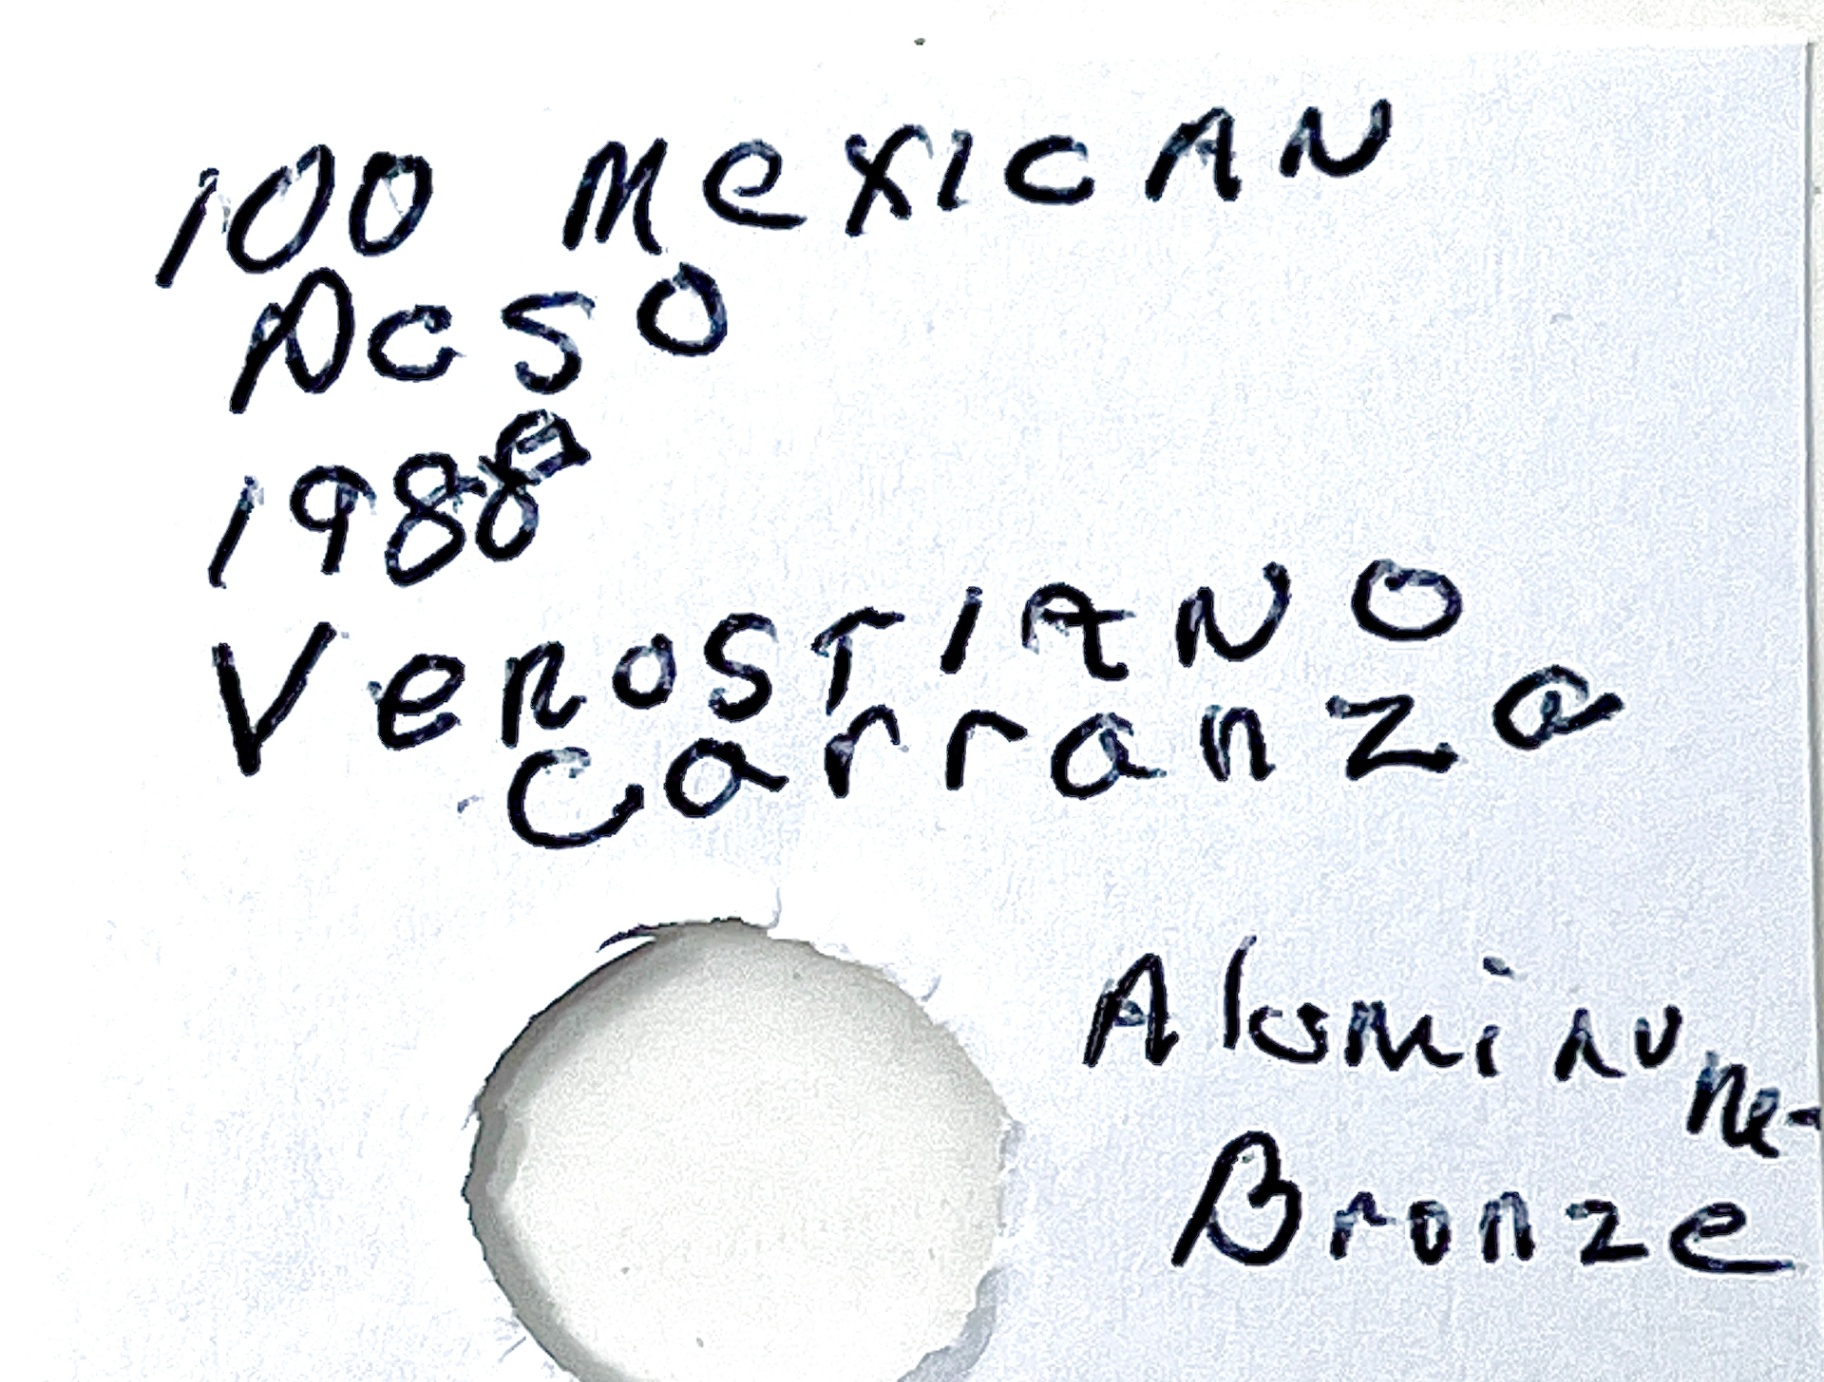 100 MexICAN
Peso
1988
VeROSTIANO
Carranza
Aluminum-
Bronze